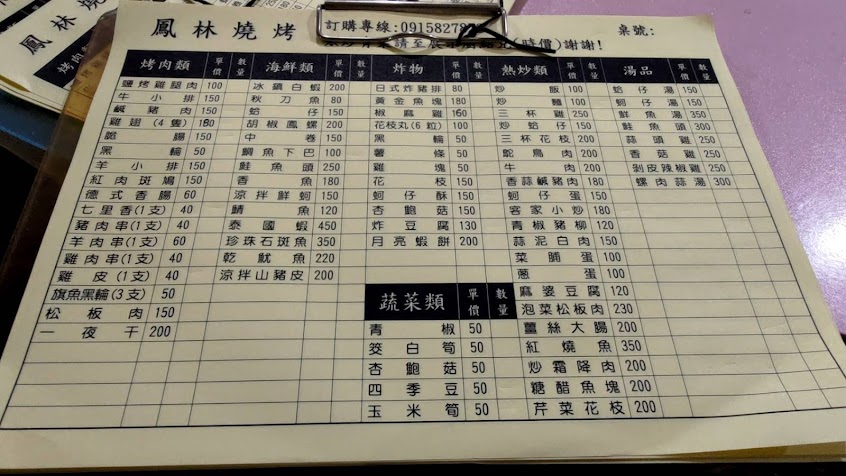 鳳林燒烤
訂購專線:09158278
桌號:
請至展示 (時價)謝謝!
烤肉類 單價 數量
鹽烤雞腿肉 100
牛小排 150
鹹豬肉 150
雞翅(4隻) 180
脆腸 150
黑輪 50
羊小排 150
紅肉斑鳩 150
德式香腸 60
七里香(1支) 40
豬肉串(1支) 40
羊肉串(1支) 60
雞肉串(1支) 40
雞皮(1支) 40
旗魚黑輪(3支) 50
松板肉 150
一夜干 200
海鮮類 單價 數量
冰鎮白蝦 200
秋刀魚 80
蛤仔 150
胡椒鳳螺 200
中卷 150
鯛魚下巴 100
鮭魚頭 250
香魚 180
涼拌鮮蚵 150
鯖魚 120
泰國蝦 450
珍珠石斑魚 350
乾魷魚 220
涼拌山豬皮 200
炸物 單價 數量
日式炸豬排 80
黃金魚塊 180
椒麻雞 160
花枝丸(6粒) 100
黑輪 50
薯條 50
雞塊 50
花枝 150
蚵仔酥 150
杏鮑菇 150
炸豆腐 130
月亮蝦餅 200
蔬菜類 單價 數量
青椒 50
筊白筍 50
杏鮑菇 50
四季豆 50
玉米筍 50
熱炒類 單價 數量
炒飯 100
炒麵 100
三杯雞 250
炒蛤仔 150
三杯花枝 200
鴕鳥肉 200
牛肉 200
香蒜鹹豬肉 180
蚵仔蛋 150
客家小炒 180
青椒豬柳 120
蒜泥白肉 150
菜脯蛋 100
蔥蛋 100
麻婆豆腐 120
泡菜松板肉 230
薑絲大腸 200
紅燒魚 350
炒霜降肉 200
糖醋魚塊 200
芹菜花枝 200
湯品 單價 數量
蛤仔湯 150
蚵仔湯 150
鮮魚湯 350
鮭魚湯 300
蒜頭雞 250
香菇雞 250
剝皮辣椒雞 250
螺肉蒜湯 300
鳳林燒
烤肉